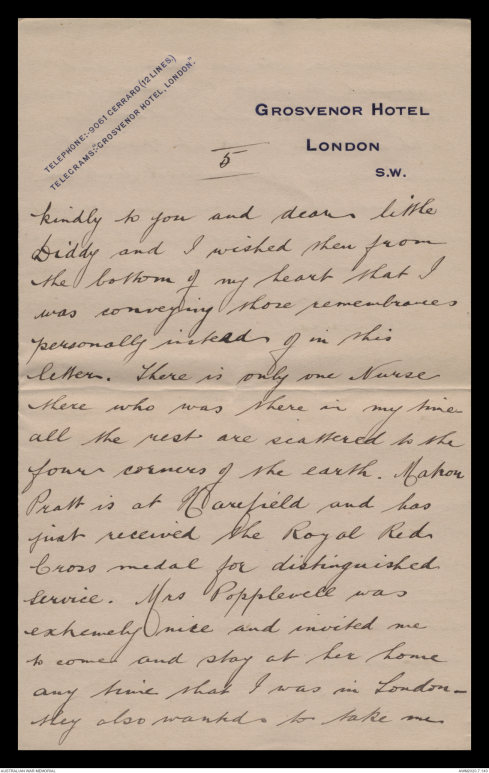 TELEPHONE:-9061 GERRARD (12 LINES)
TELEGRAMS:-"GROSVENOR HOTEL, LONDON."
GROSVENOR HOTEL
LONDON
S.W.
5
kindly to you and dear little
Diddy and I wished then from
the bottom of my heart that I
was conveying those remembrances
personally instead of in this
letter. There is only one Nurse
there who was there in my time
all the rest are scattered to the
four corners of the earth. Matron
Pratt is at Harefield and has
just received the Royal Red
Cross medal for distinguished
service. Mrs Popplevell was
extremely nice and invited me
to come and stay at her home
any time that I was in London -
they also wanted to take me
AUSTRALIAN WAR MEMORIAL